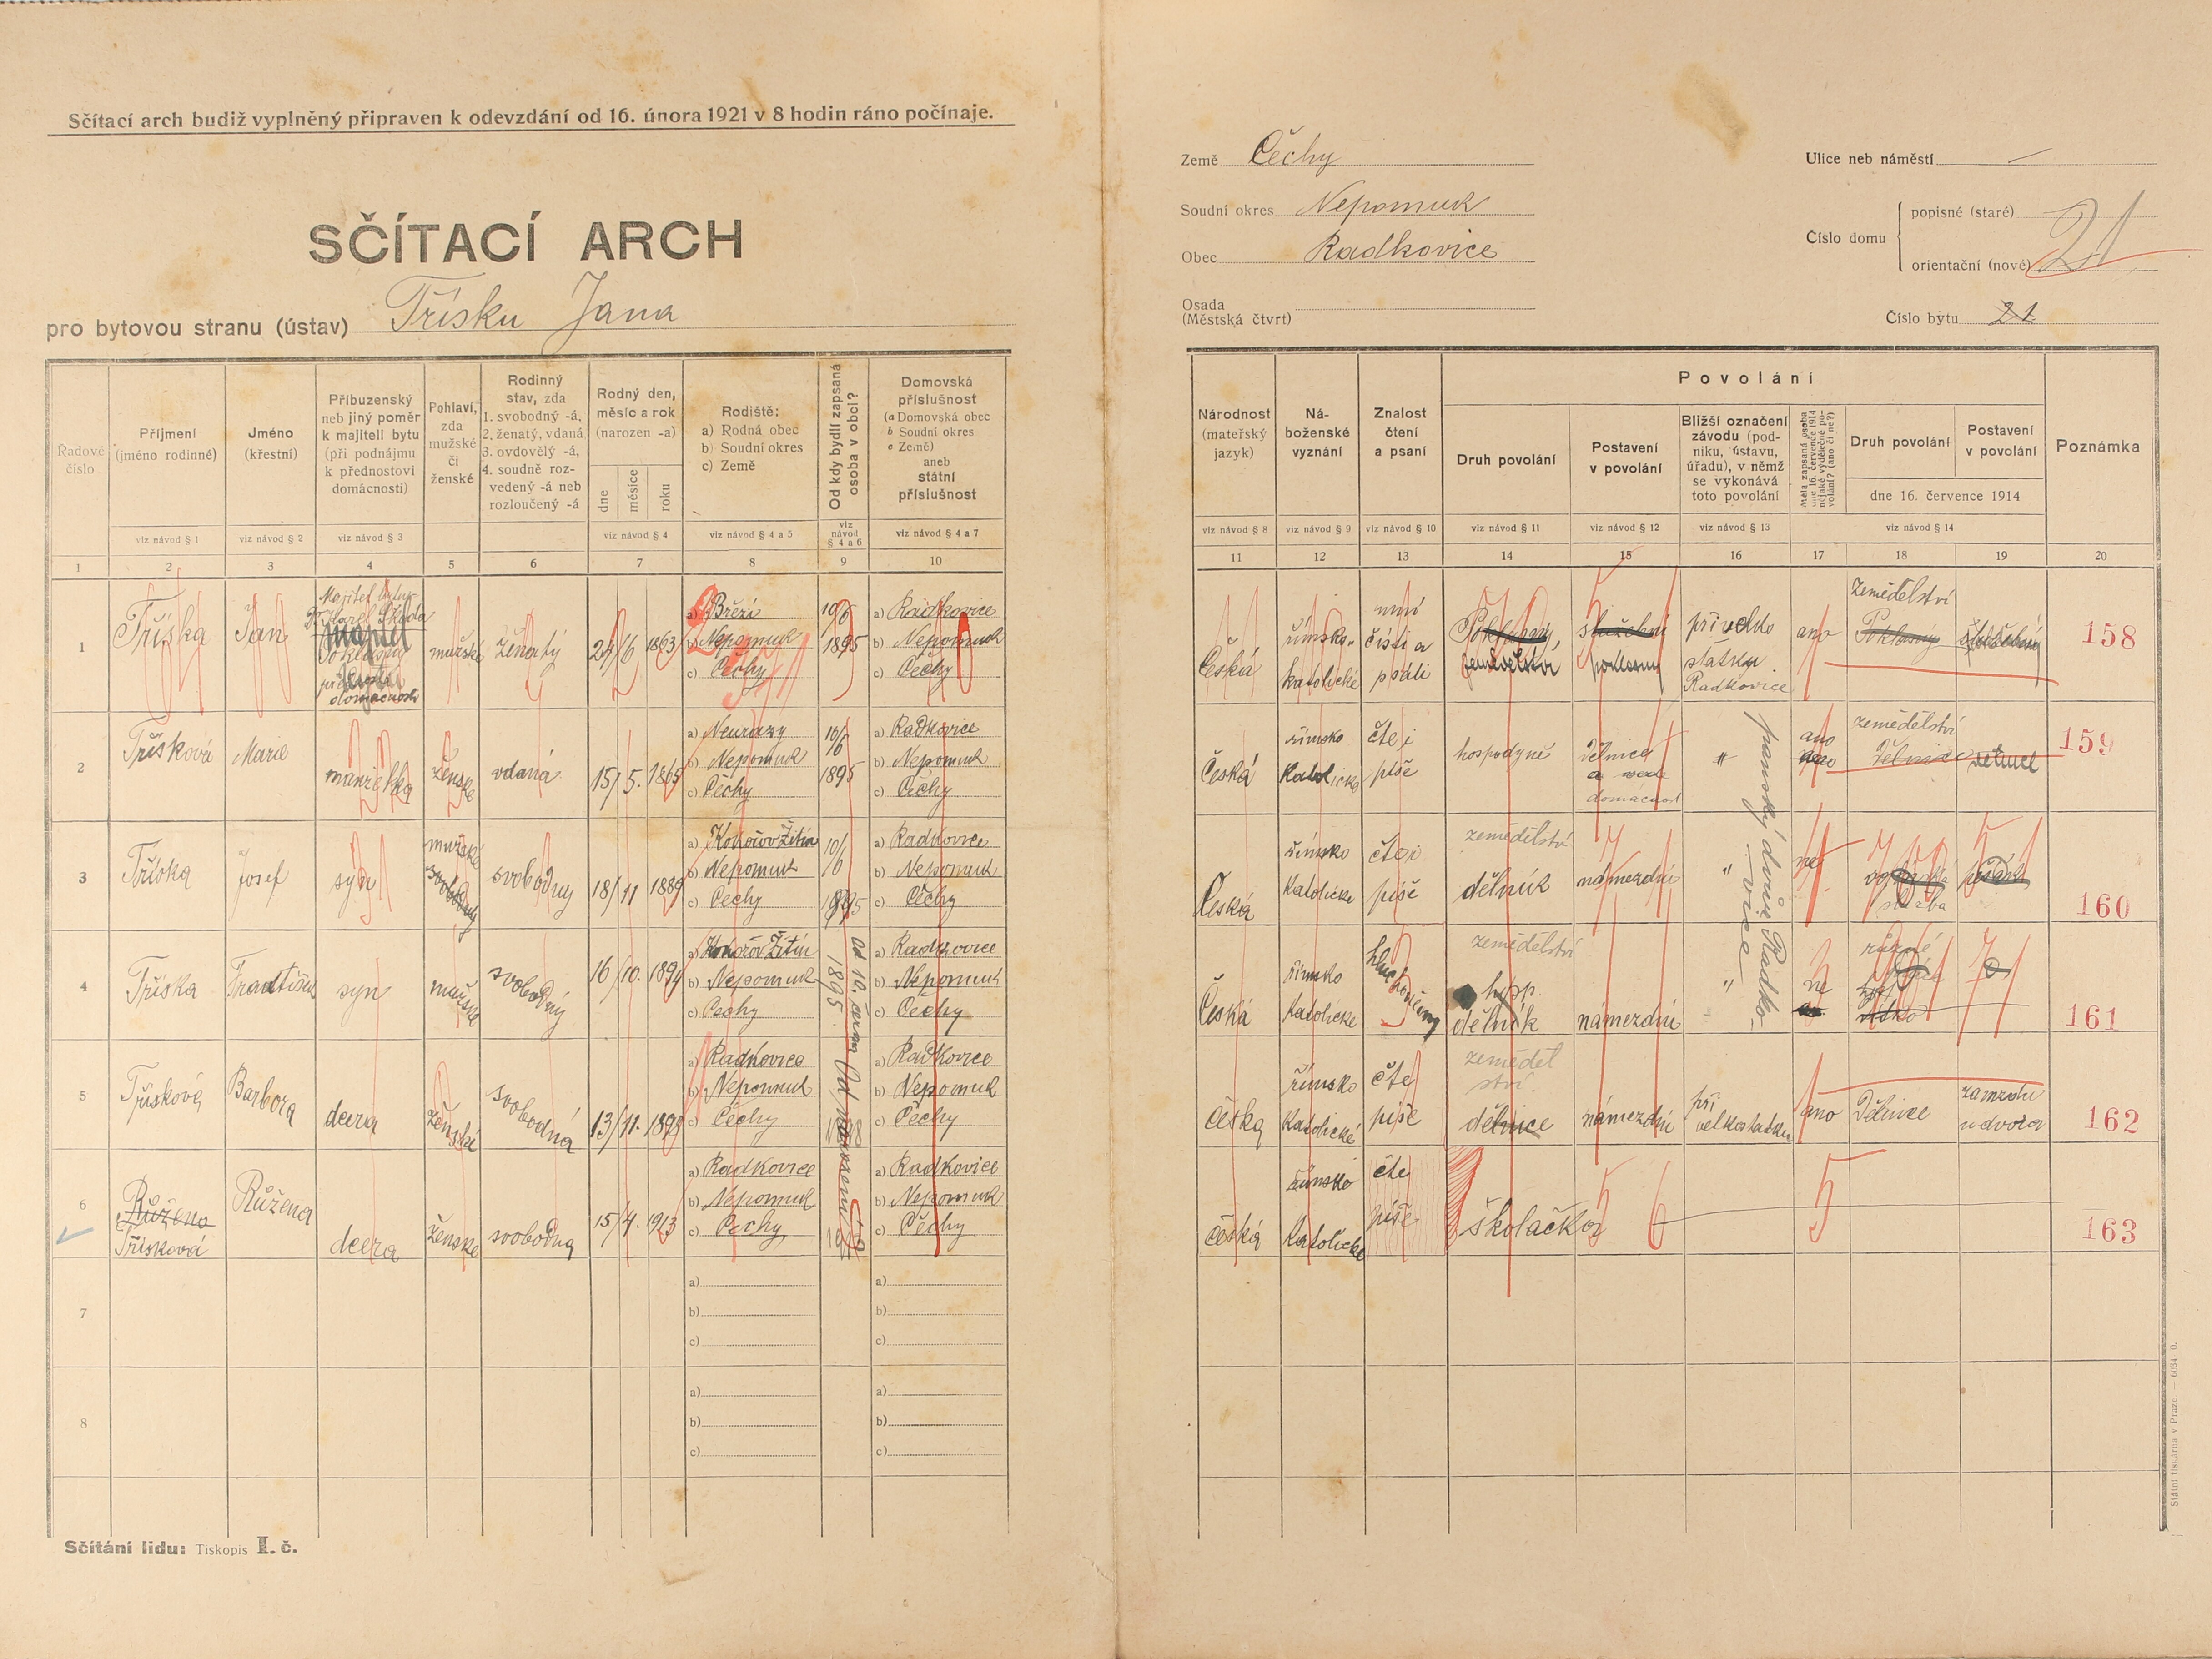 Sčítací arch budiž vyplněný připraven k odevzdání od 16. února 1921 v 8 hodin ráno počínaje.
SČÍTACÍ ARCH
pro bytovou stranu (ústav) Třísku Jana
Země Čechy
Soudní okres Nepomuk
Obec Radkovice
Osada
(Městská čtvrt)
Ulice neb náměstí —
Číslo domu
popisné (staré)
orientační (nové)
21
Číslo bytu 21
Řadové číslo
Příjmení (jméno rodinné)
Jméno (křestní)
Příbuzenský neb jiný poměr k majiteli bytu (při podnájmu k přednostovi domácnosti)
Pohlaví, zda mužské či ženské
Rodinný stav, zda 1. svobodný -á, 2. ženatý, vdaná 3. ovdovělý -á, 4. soudně rozvedený -á neb rozloučený -á
Rodný den, měsíc a rok (narozen -a)
dne měsíce roku
Rodiště: a) Rodná obec b) Soudní okres c) Země
Od kdy bydlí zapsaná osoba v obci?
Domovská příslušnost (a Domovská obec b Soudní okres c Země) aneb státní příslušnost
viz návod § 1
viz návod § 2
viz návod § 3
viz návod § 4
viz návod § 4 a 5
viz návod § 4 a 6
viz návod § 4 a 7
1 2 3 4 5 6 7 8 9 10
Národnost (mateřský jazyk)
Náboženské vyznání
Znalost čtení a psaní
Povolání
Druh povolání
Postavení v povolání
Bližší označení závodu (podniku, ústavu, úřadu), v němž se vykonává toto povolání
Měla zapsaná osoba dne 16. července 1914 nějaké výdělečné povolání? (ano či ne?)
Druh povolání
Postavení v povolání
dne 16. července 1914
Poznámka
viz návod § 8
viz návod § 9
viz návod § 10
viz návod § 11
viz návod § 12
viz návod § 13
viz návod § 14
11 12 13 14 15 16 17 18 19 20
1 Tříska Jan
Majitel bytu
přednosta
domácnosti
mužské ženatý 24/6 1863
a) Březí
b) Nepomuk
c) Čechy
10/6
1895
a) Radkovice
b) Nepomuk
c) Čechy
Česká
římsko-
katolické
umí
čísti a
psáti
Poklasný,
zemědělství
služební
poklasný
při velko
statku
Radkovice
ano
zemědělství
Poklasný
služební
158
2 Třísková Marie manželka ženské vdaná 15/5. 1865
a) Neurazy
b) Nepomuk
c) Čechy
10/6
1895
a) Radkovice
b) Nepomuk
c) Čechy
Česká
římsko
Katolické
čte i
píše
hospodyně
dělnice
domácnost
"
panský dvůr Radko-
vice
ano
zemědělství
Dělnice
159
3 Tříska Josef syn
mužské
svobodný
svobodný 18/11 1889
a) Kokořov Žitín
b) Nepomuk
c) Čechy
10/6
1895
a) Radkovice
b) Nepomuk
c) Čechy
Česká
římsko
Katolické
čte i
píše
zemědělství
dělník
námezdní
"
ne
160
4 Tříska František syn mužské svobodný 16/10. 1894
a) Kokořov Žitín
b) Nepomuk
c) Čechy
Od 10. června
1895
a) Radkovice
b) Nepomuk
c) Čechy
Česká
římsko
Katolické
hluchoněmý
zemědělství
dělník
námezdní
"
ne
161
5 Třísková Barbora dcera ženské svobodná 13/11. 1898
a) Radkovice
b) Nepomuk
c) Čechy
Od narození
1898
a) Radkovice
b) Nepomuk
c) Čechy
česká
římsko
Katolické
čte
píše
zeměděl
ství
dělnice
námezdní
při
velkostatku
ano
Dělnice
za mzdu
u dvora
162
6 Růžena
Třísková
Růžena
dcera ženské svobodna 15/4. 1913
a) Radkovice
b) Nepomuk
c) Čechy
a) Radkovice
b) Nepomuk
c) Čechy
česká
římsko
Katolické
čte
píše
školačka
5 6
5
163
7
a)
b)
c)
a)
b)
c)
8
a)
b)
c)
a)
b)
c)
Sčítání lidu: Tiskopis I. č.
Státní tiskárna v Praze. — 6034 0.